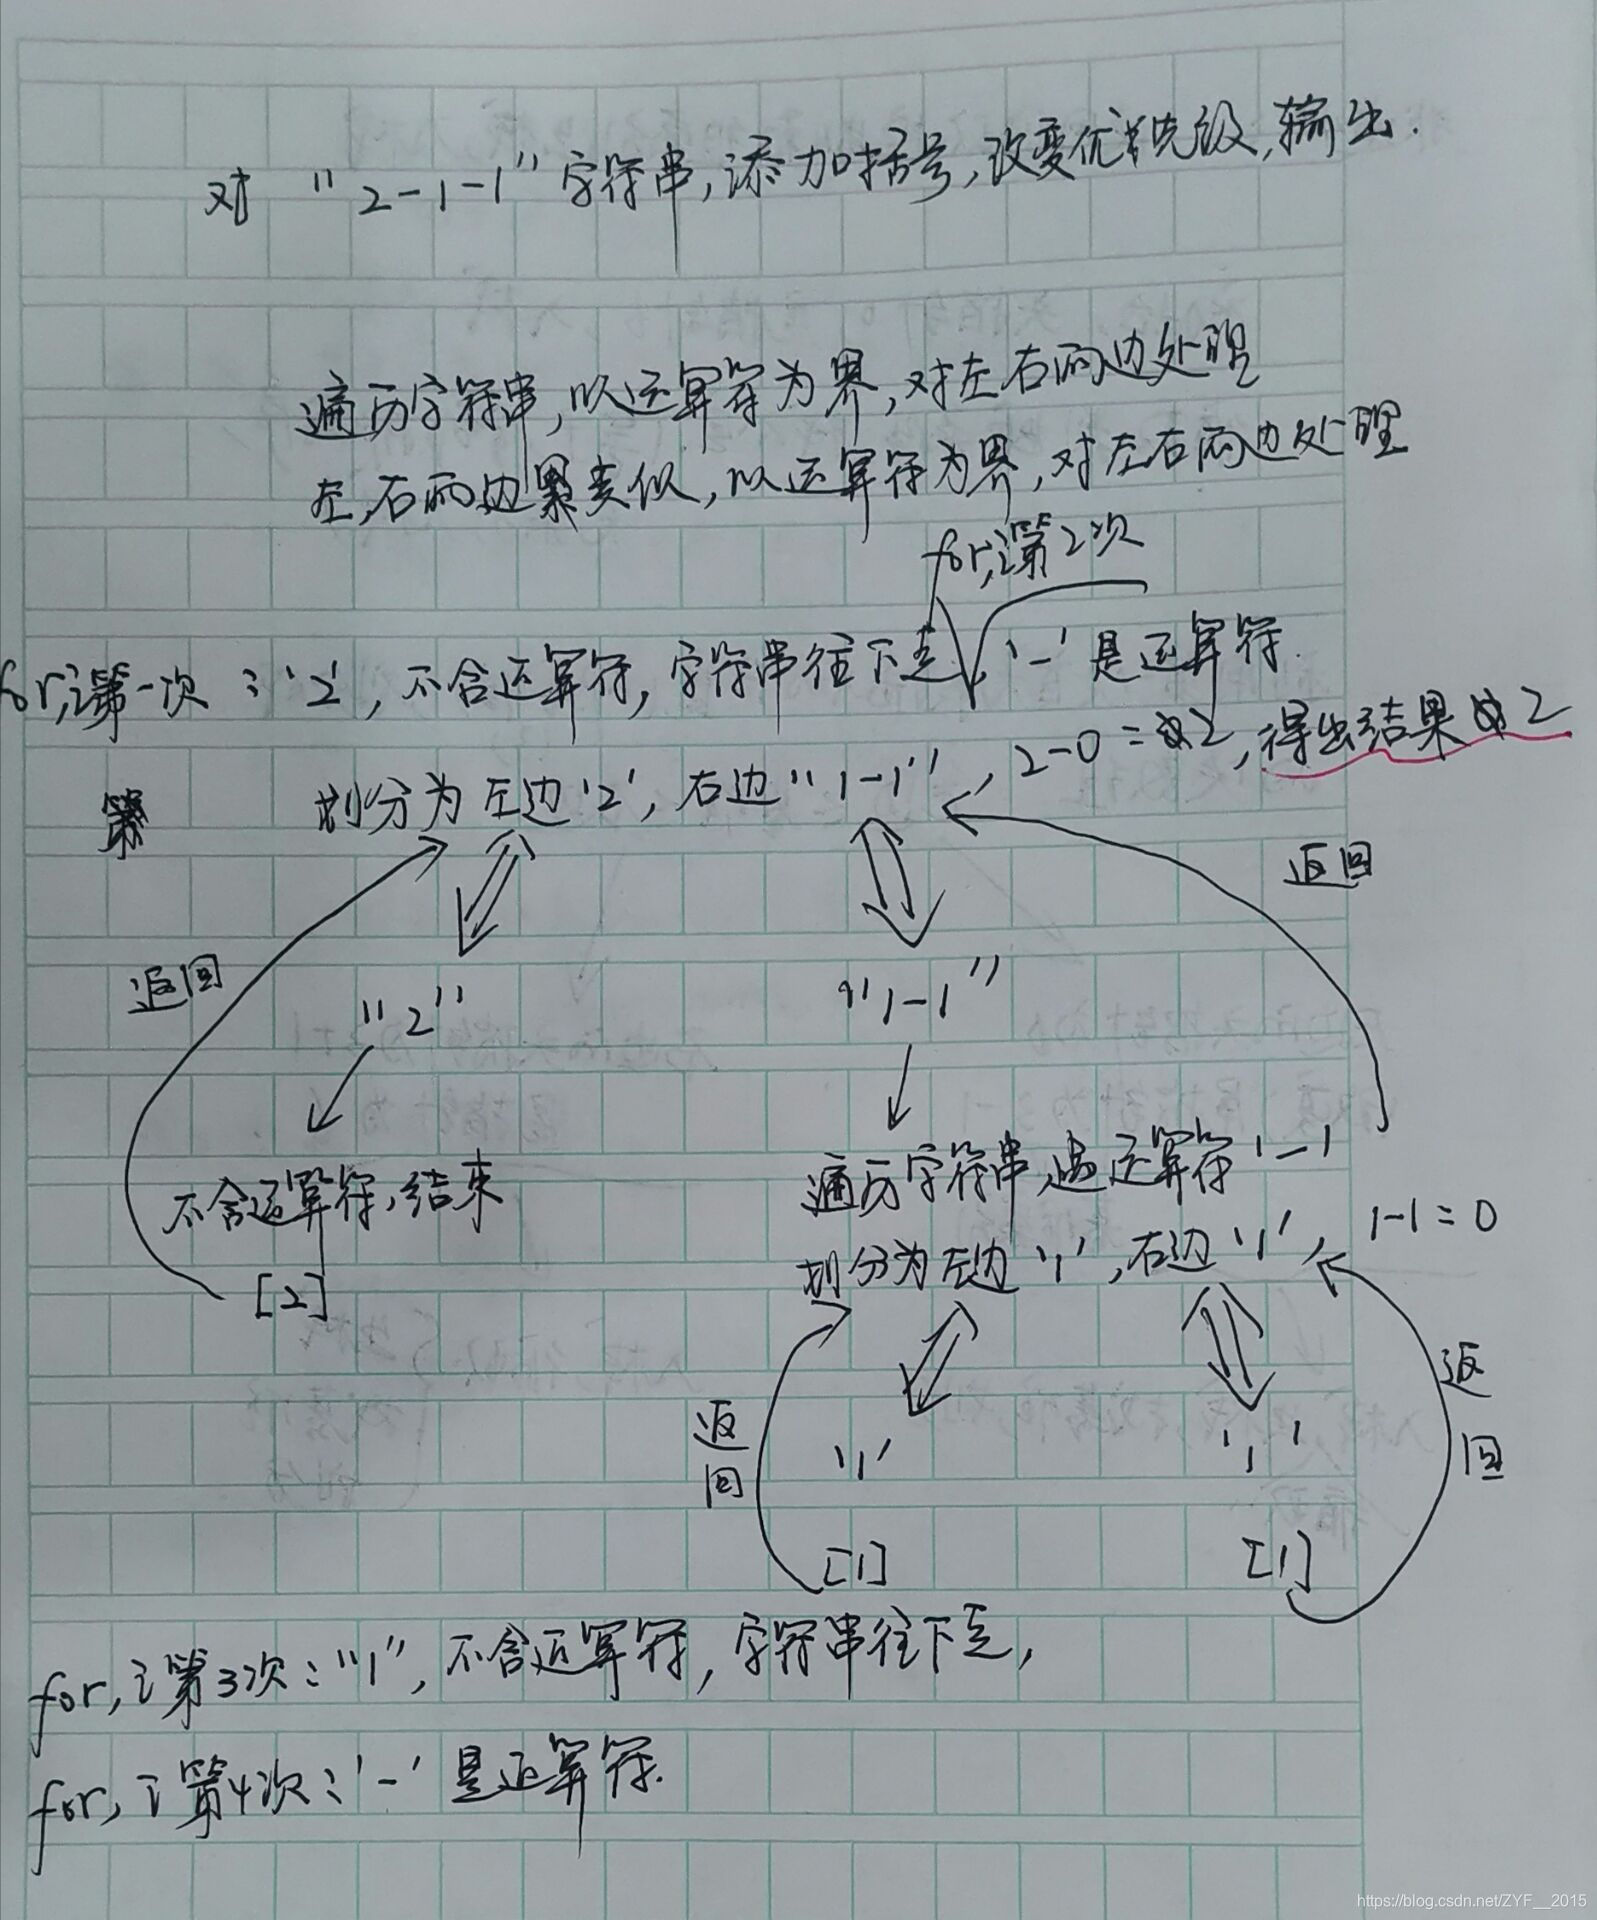 对 "2-1-1" 字符串,添加括号,改变优先级,输出.
遍历字符串,以运算符为界,对左右两边处理
左,右两边类似,以运算符为界,对左右两边处理
for,i第2次
for,i第一次:'2',不含运算符,字符串往下走 '-'是运算符.
划分为左边'2',右边"1-1", 2-0=2,得出结果2
第
返回
返回
"2"
"1-1"
不含运算符,结束
[2]
遍历字符串,遇运算符'-'
划分为左边'1',右边'1', 1-1=0
返回
返回
'1'
'1'
[1]
[1]
for,i第3次:"1",不含运算符,字符串往下走,
for,i第4次:'-'是运算符.
https://blog.csdn.net/ZYF__2015